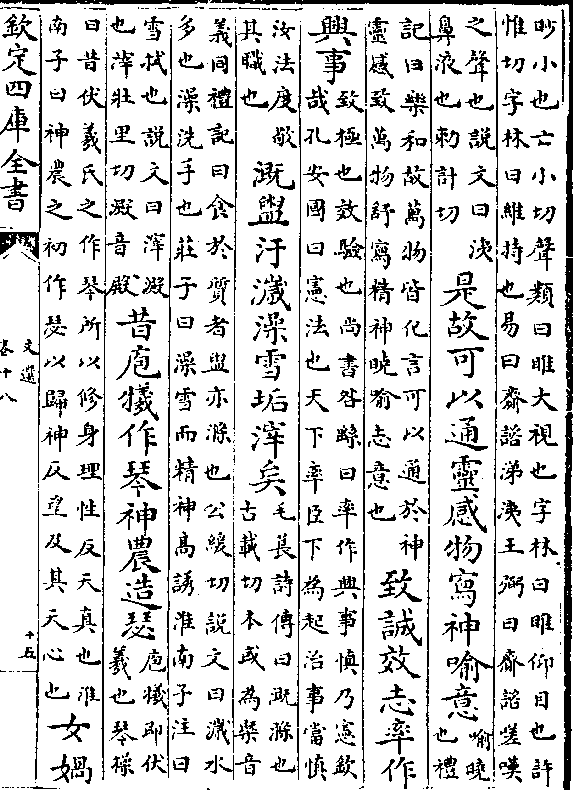 眇小也亡小切聲類曰睢大視也字林曰睢仰目也許
惟切字林曰維持也易曰齎諮涕洟王弼曰齎諮嗟嘆
之聲也說文曰洟
鼻液也勅計切
是故可以通靈感物寫神喻意
喻曉
也禮
記曰樂和故萬物皆化言可以通於神
靈感致萬物舒寫精神曉喻志意也
致誠效志率作
興事
致極也效驗也尚書咎繇曰率作興事慎乃憲欽
哉孔安國曰憲法也天下率臣下為起治事當慎
汝法度敬
其職也
溉盥汙濊澡雪垢滓矣
毛萇詩傳曰溉滌也
古載切本或為槩音
義同禮記曰食於質者盥亦滌也公緩切說文曰濊水
多也澡洗手也莊子曰澡雪而精神高誘淮南子注曰
雪拭也說文曰滓澱
也滓壯里切澱音殿
昔庖犧作琴神農造瑟
庖犧即伏
羲也琴操
曰昔伏羲氏之作琴所以修身理性反天真也淮
南子曰神農之初作瑟以歸神反望及其天心也
女媧
欽定四庫全書
文選
卷十八
十五